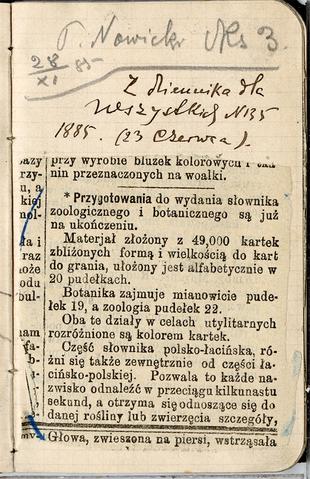 T. Nowicki Ms 3.
28/XI 85
Z dziennika dla
Wszystkich N 135
1885. (23 Czerwca).
azy
rzy-
u, a
kiej
nol-
ła i
raz
oże
odu
bul-
nam
fa-
mv-
przy wyrobie bluzek kolorowych i tka
nin przeznaczonych na woalki.
* Przygotowania do wydania słownika
zoologicznego i botanicznego są już
na ukończeniu.
Materjał złożony z 49,000 kartek
zbliżonych formą i wielkością do kart
do grania, ułożony jest alfabetycznie w
20 pudełkach.
Botanika zajmuje mianowicie pude-
łek 19, a zoologia pudełek 22.
Oba te działy w celach utylitarnych
rozróżnione są kolorem kartek.
Część słownika polsko-łacińska, ró-
żni się także zewnętrznie od części ła-
cińsko-polskiej. Pozwala to każde na-
zwisko odnaleźć w przeciągu kilkunastu
sekund, a otrzyma się odnoszące się do
danej rośliny lub zwierzęcia szczegóły,
Głowa, zwieszona na piersi, wstrząsała